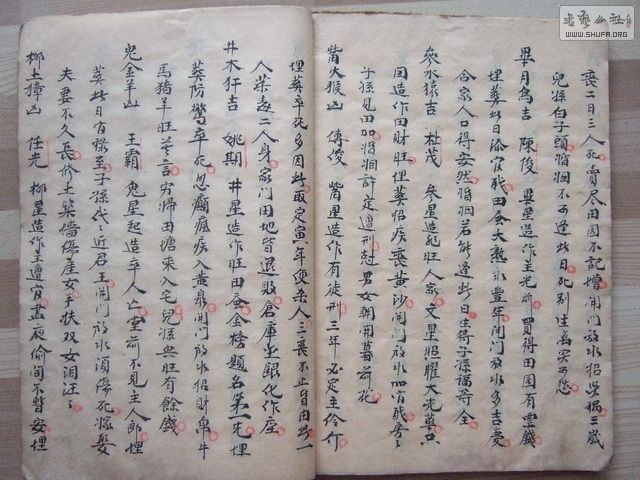 喪二日三人死賣尽田园不記增開門放水招災禍三歲
兒孫白了頭婚姻不可逢此日死别生离實可愁
畢月烏吉 陳俊 畢星造作主光前買得田園有粟錢
埋葬此日添官职田蚕大熟永豐年開門放水多吉慶
合家人口得安然婚姻若能逢此日生得子孫福壽全
觜火猴凶 傅俊 觜星造作有徒刑三年必定主伶仃
埋葬卒死多因此取定寅年便杀人三喪不止皆由此一
人药毒二人身家門田地皆退敗倉庫金銀化作塵
參水猿吉 杜茂 參星造作旺人家文星照耀大光華只
因造作田財旺埋葬招疾喪黃沙開門放水加官职房房
子孫見田加婚姻許定遭刑尅男女朝開暮落花
井木犴吉 姚期 井星造作旺田蚕金榜題名第一先埋
葬防驚卒死忽癲瘋疾入黃泉開門放水招財帛牛
馬猪羊旺莫言寡婦田塘来入宅兒孫興旺有餘錢
鬼金羊凶 王霸 鬼星起造卒人亡堂前不見主人郎埋
葬此日官祿至子孫代代近君王開門放水須傷死嫁娶
夫妻不久長修土築墻傷産女手扶双女泪汪汪
柳土獐凶 任光 柳星造作主遭官晝夜偷閉不暫安埋
書藝公社
WWW.SHUFA.ORG